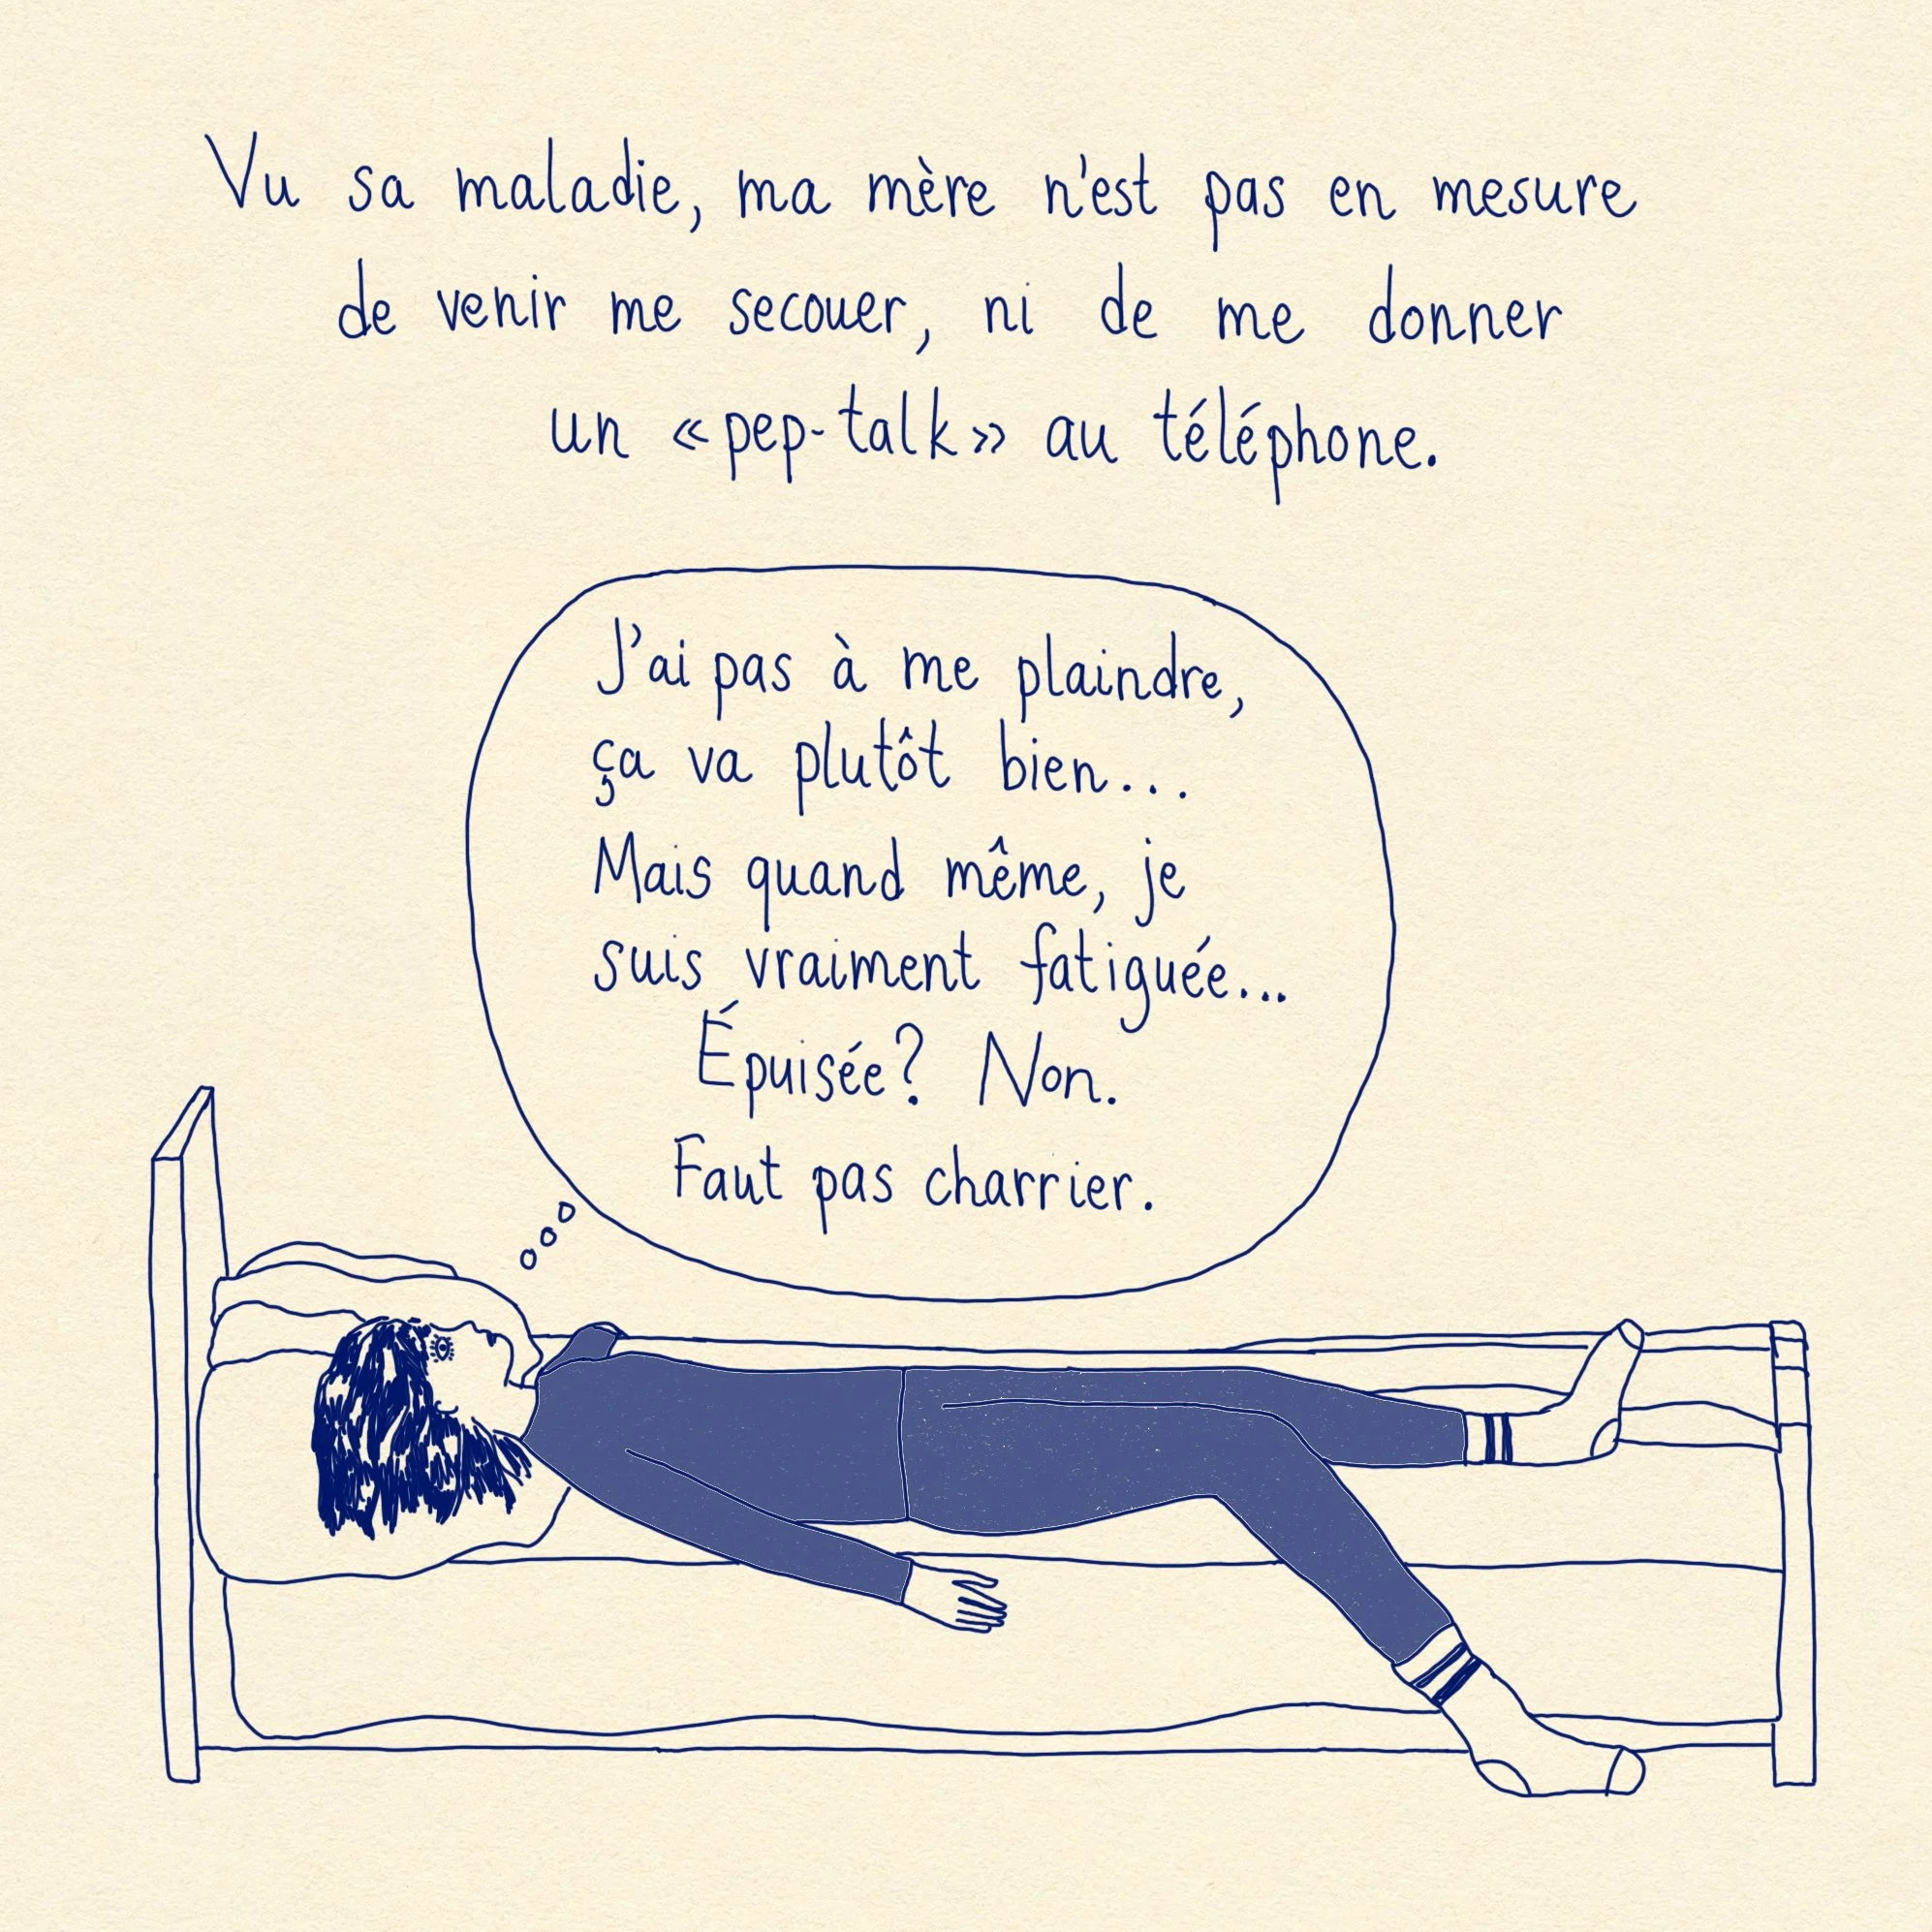 Vu sa maladie, ma mère n'est pas en mesure
de venir me secouer, ni de me donner
un « pep-talk » au téléphone.
J'ai pas à me plaindre,
ça va plutôt bien...
Mais quand même, je
suis vraiment fatiguée...
Épuisée? Non.
Faut pas charrier.